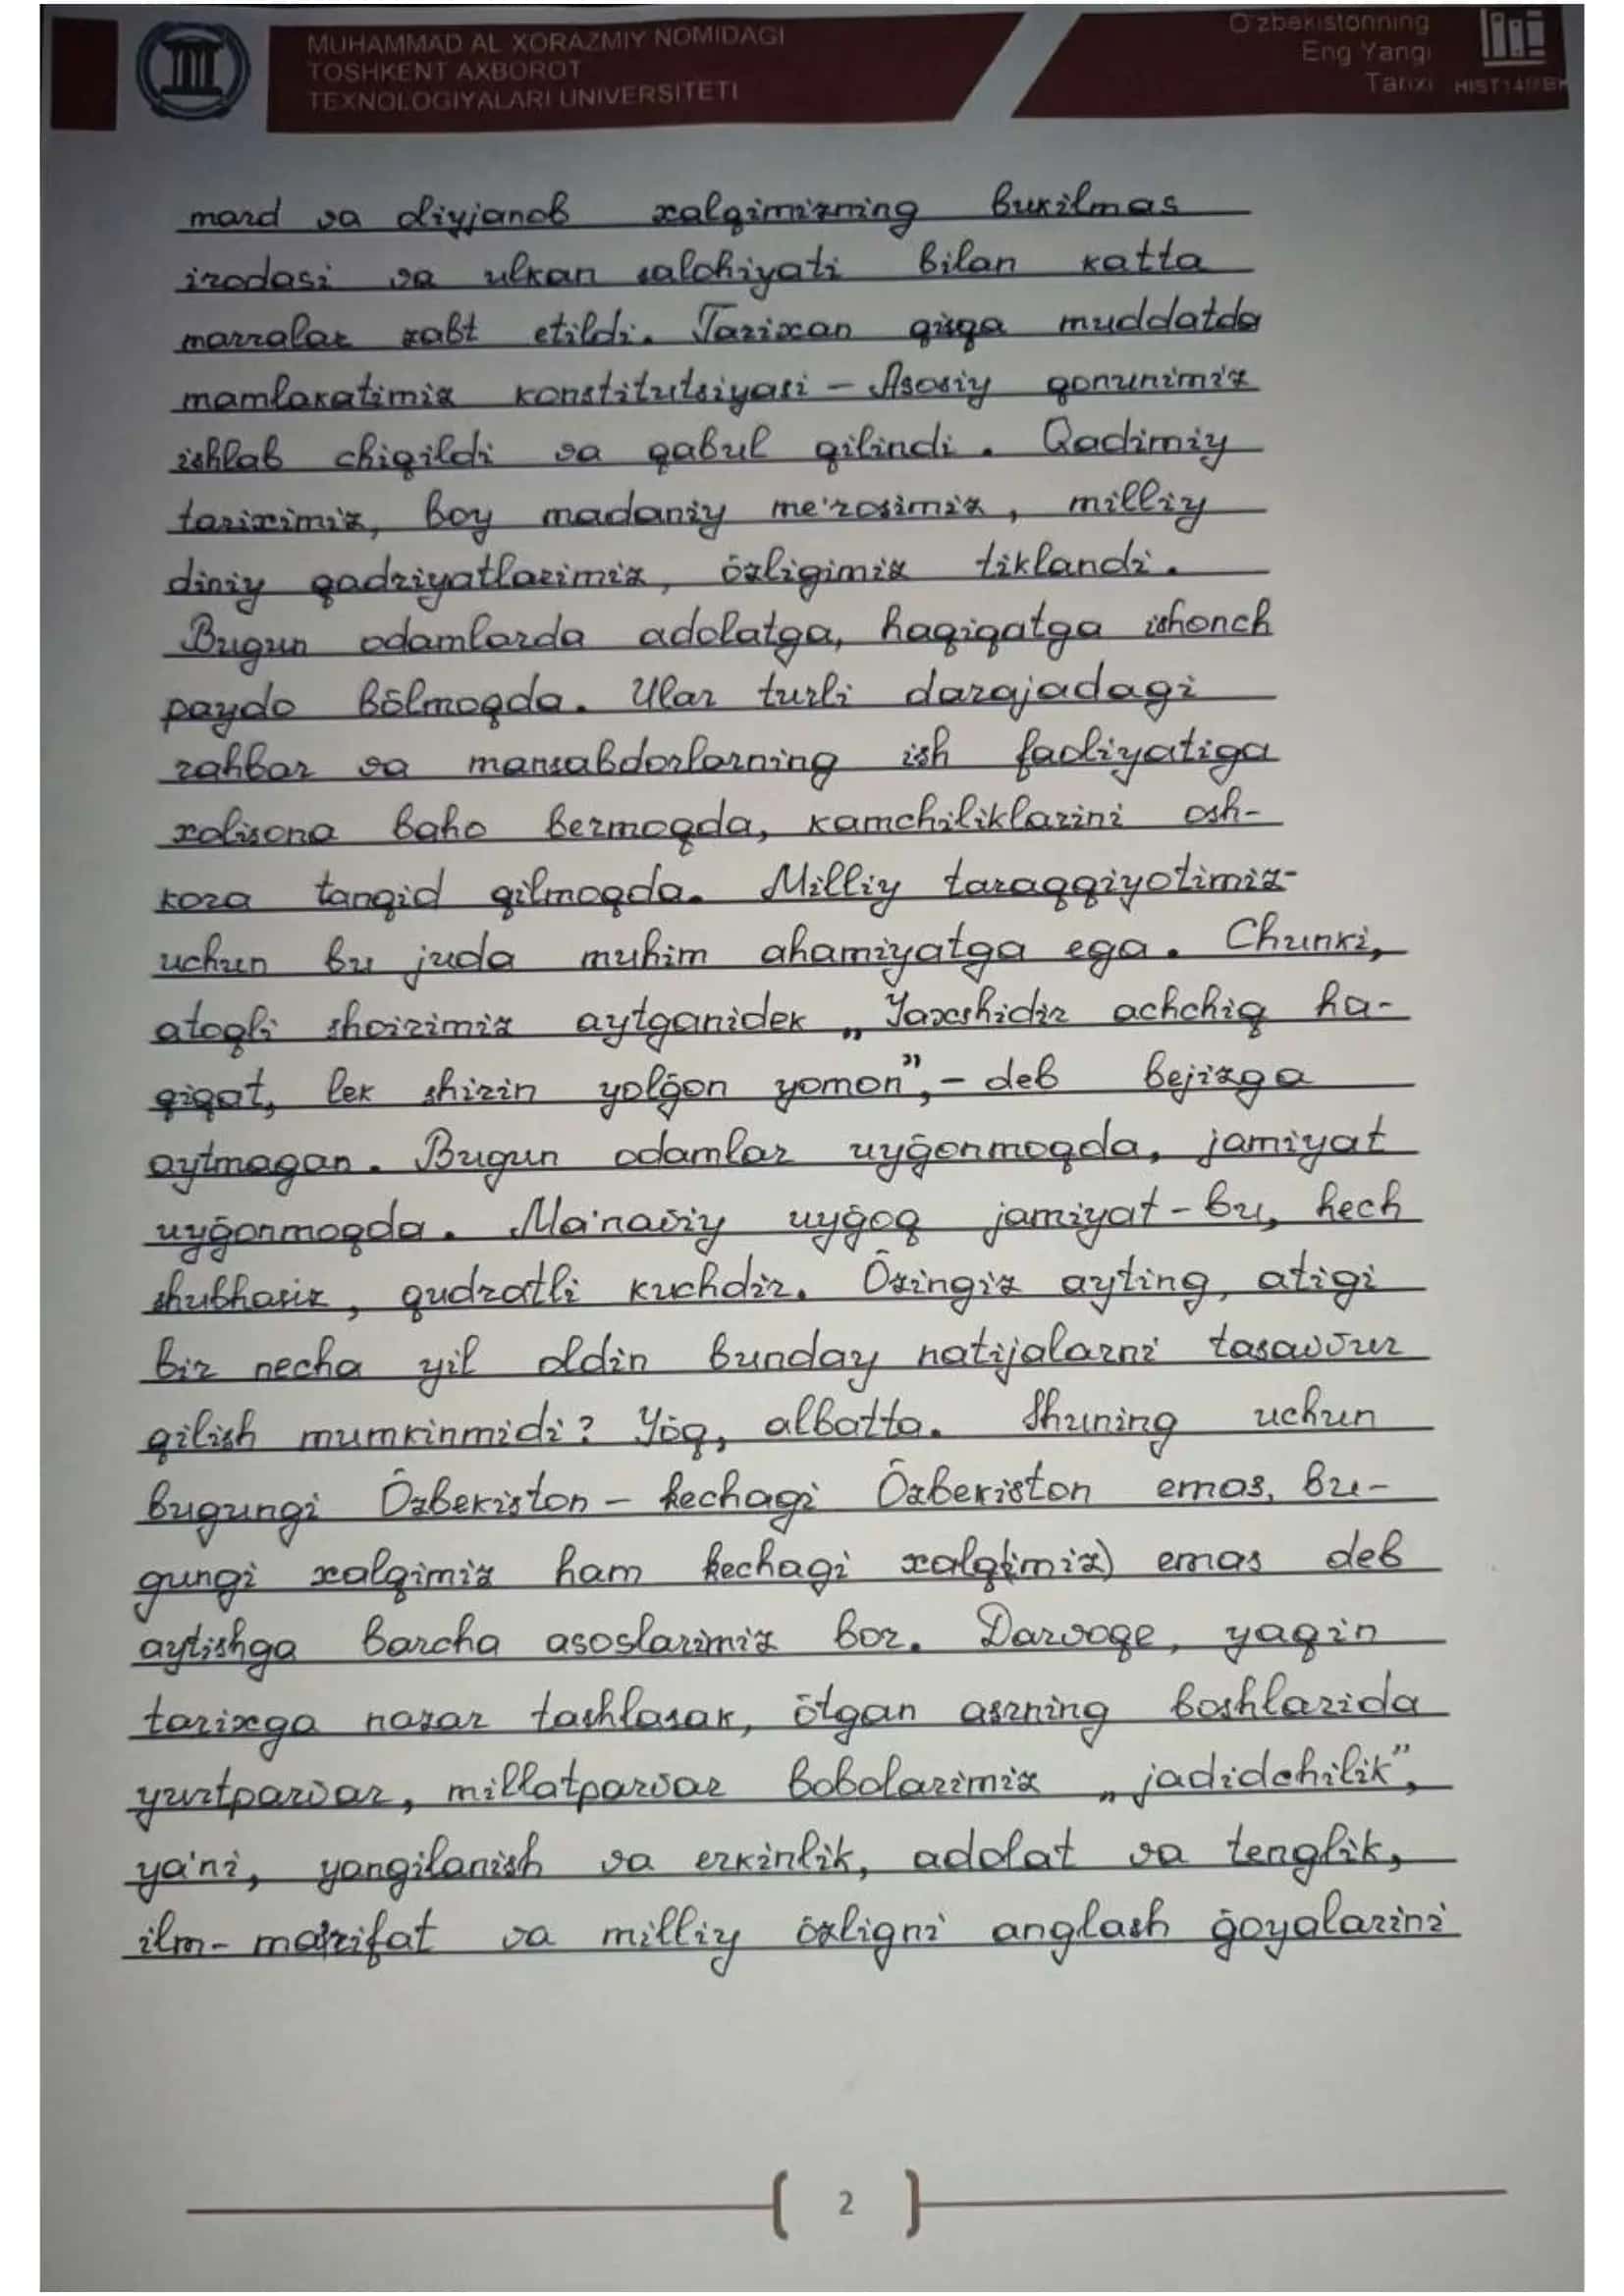 MUHAMMAD AL XORAZMIY NOMIDAGI
TOSHKENT AXBOROT
TEXNOLOGIYALARI UNIVERSITETI
O'zbekistonning
Eng Yangi
Tarixi
mard va oliyjanob xalqimizning bukilmas
irodasi va ulkan salohiyati bilan katta
marralar zabt etildi. Tarixan qisqa muddatda
mamlakatimiz konstitutsiyasi – Asosiy qonunimiz
ishlab chiqildi va qabul qilindi. Qadimiy
tariximiz, boy madaniy me'rosimiz, milliy
diniy qadriyatlarimiz, õzligimiz tiklandi.
Bugun odamlarda adolatga, haqiqatga ishonch
paydo bõlmoqda. Ular turli darajadagi
rahbar va mansabdorlarning ish faoliyatiga
xolisona baho bermoqda, kamchiliklarini osh-
kora tanqid qilmoqda. Milliy taraqqiyotimiz-
uchun bu juda muhim ahamiyatga ega. Chunki,
atoqli shoirimiz aytganidek „Yaxshidir achchiq ha-
qiqat, lek shirin yolg̃on yomon”,– deb bejizga
aytmagan. Bugun odamlar uyg̃onmoqda, jamiyat
uyg̃onmoqda. Ma'naviy uyg̃oq jamiyat – bu, hech
shubhasiz, qudratli kuchdir. Õzingiz ayting, atigi
bir necha yil oldin bunday natijalarni tasavvur
qilish mumkinmidi? Yõq, albatta. Shuning uchun
bugungi Õzbekiston – kechagi Õzbekiston emas, bu-
gungi xalqimiz ham kechagi xalq(imiz) emas deb
aytishga barcha asoslarimiz bor. Darvoqe, yaqin
tarixga nazar tashlasak, õtgan asrning boshlarida
yurtparvar, millatparvar bobolarimiz „jadidchilik”,
ya'ni, yangilanish va erkinlik, adolat va tenglik,
ilm-ma'rifat va milliy õzligni anglash g̃oyalarini
2